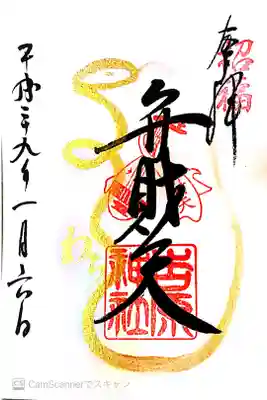 奉拝
招福
弁財天
吉原
神社
平成二九年一月六日
CS CamScannerでスキャン